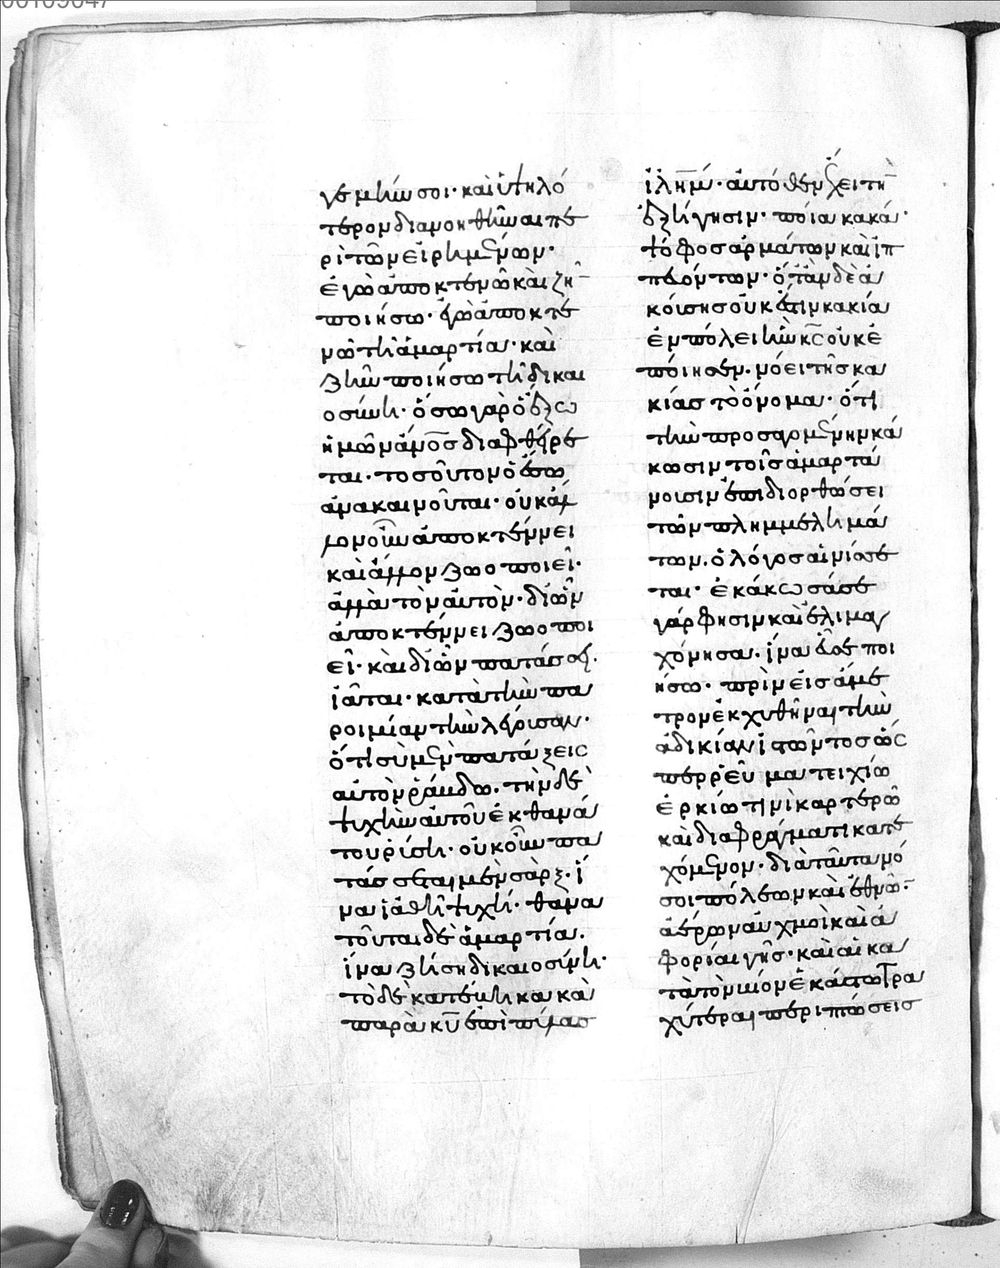 γέ μὴν σοι· καὶ ὑψηλό
τερον διανοηθῆναι πε
ρὶ τῶν εἰρημένων·
ἐγὼ ἀποκτενῶ καὶ ζῆν
ποιήσω· ἐγὼ ἀποκτε
νῶ τὴν ἁμαρτίαν· καὶ
ζῆν ποιήσω τὴν δικαι
οσύνην· ὅσω γὰρ ὁ ἔξω
ἡμῶν ἄνος διαφθείρε
ται· τοσοῦτον ὁ ἔσω
ἀνακαινοῦται· οὐκ ἄλ
λον οὖν ἀποκτέννει
καὶ ἄλλον ζωοποιεῖ·
ἀλλὰ τὸν αὐτὸν· δι ὧν
ἀποκτέννει ζωοποι
εῖ· καὶ δι ὧν πατάσσει·
ἰᾶται· κατὰ τὴν πα
ροιμίαν τὴν λέγουσαν·
ὅτι σὺ μὲν πατάξεις
αὐτὸν ῥάβδω· τὴν δὲ
ψυχὴν αὐτοῦ ἐκ θανά
του ῥύση· οὐκοῦν πα
τάσσεται μὲν σὰρξ· ἵ
να ἰαθῆ ψυχή· θανα
τοῦται δὲ ἁμαρτία·
ἵνα ζήση δικαιοσύνη·
τὸ δὲ κατέβη κακὰ
παρὰ κυ ἐπὶ πύλας
ιλημ· αὐτόθεν ἔχει τὴν
ἐξήγησιν· ποῖα κακά·
ψόφος ἁρμάτων καὶ ἱπ
πεόντων· ὅταν δὲ ἀ
κούσης οὐκ ἔστιν κακία
ἐν πόλει ἣν κς οὐκ ἐ
ποίησεν· νόει τῆς κα
κίας τὸ ὄνομα· ὅτι
τὴν προσαγομένην κά
κωσιν τοῖς ἁμαρτά
νουσιν ἐπὶ διορθώσει
τῶν πλημμελημά
των· ὁ λόγος αἰνίσσε
ται· ἐκάκωσά σε
γάρ φησιν καὶ ἐλιμαγ
χόνησα· ἵνα εὖ σε ποι
ήσω· πρὶν εἰς ἄμε
τρον ἐκχυθῆναι τὴν
ἀδικίαν ἱστῶντος ὥς
περ ῥεῦμα τειχίω
ἑρκίω τινὶ καρτέρῶ
καὶ διαφράγματι κατε
χόμενον· διὰ ταῦτα νό
σοι πόλεων καὶ ἐθνῶν·
ἀέρων αὐχμοὶ καὶ ἀ
φορίαι γῆς· καὶ αἱ κα
τὰ τὸν βίον ἑκάστω τρα
χύτεραι περιπτώσεις